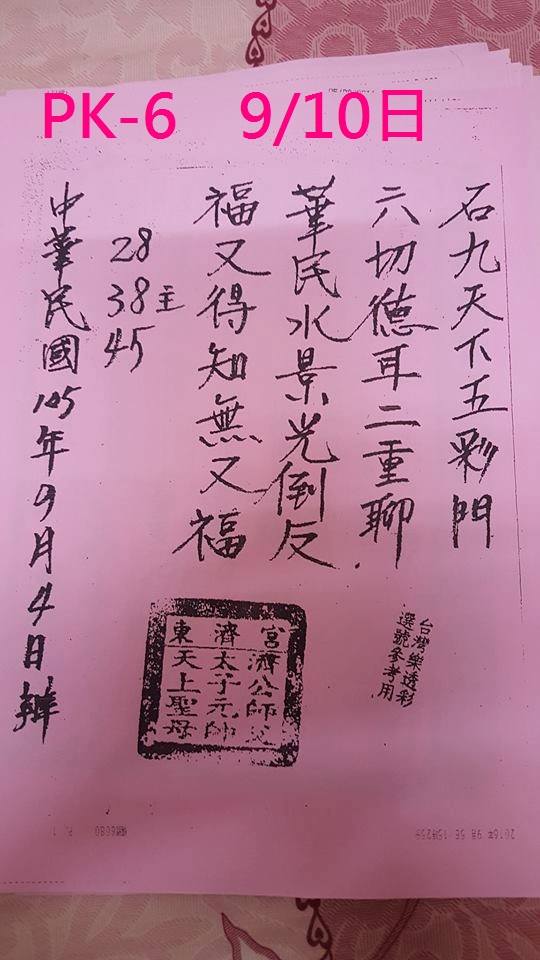 PK-6 9/10日
石九天下五彩門
六切德耳二重聊
華民水景光倒反
福又得知無又福
28
38主
45
中華民國105年9月4日辦
台灣樂透彩
選號參考用
宮濟公師父
濟太子元帥
東天上聖母